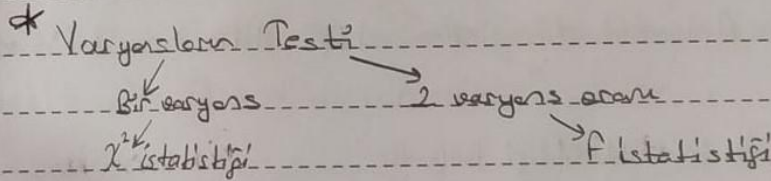 * Varyansların Testi
Bir varyans 2 varyans oranı
X² istatistiği F istatistiği